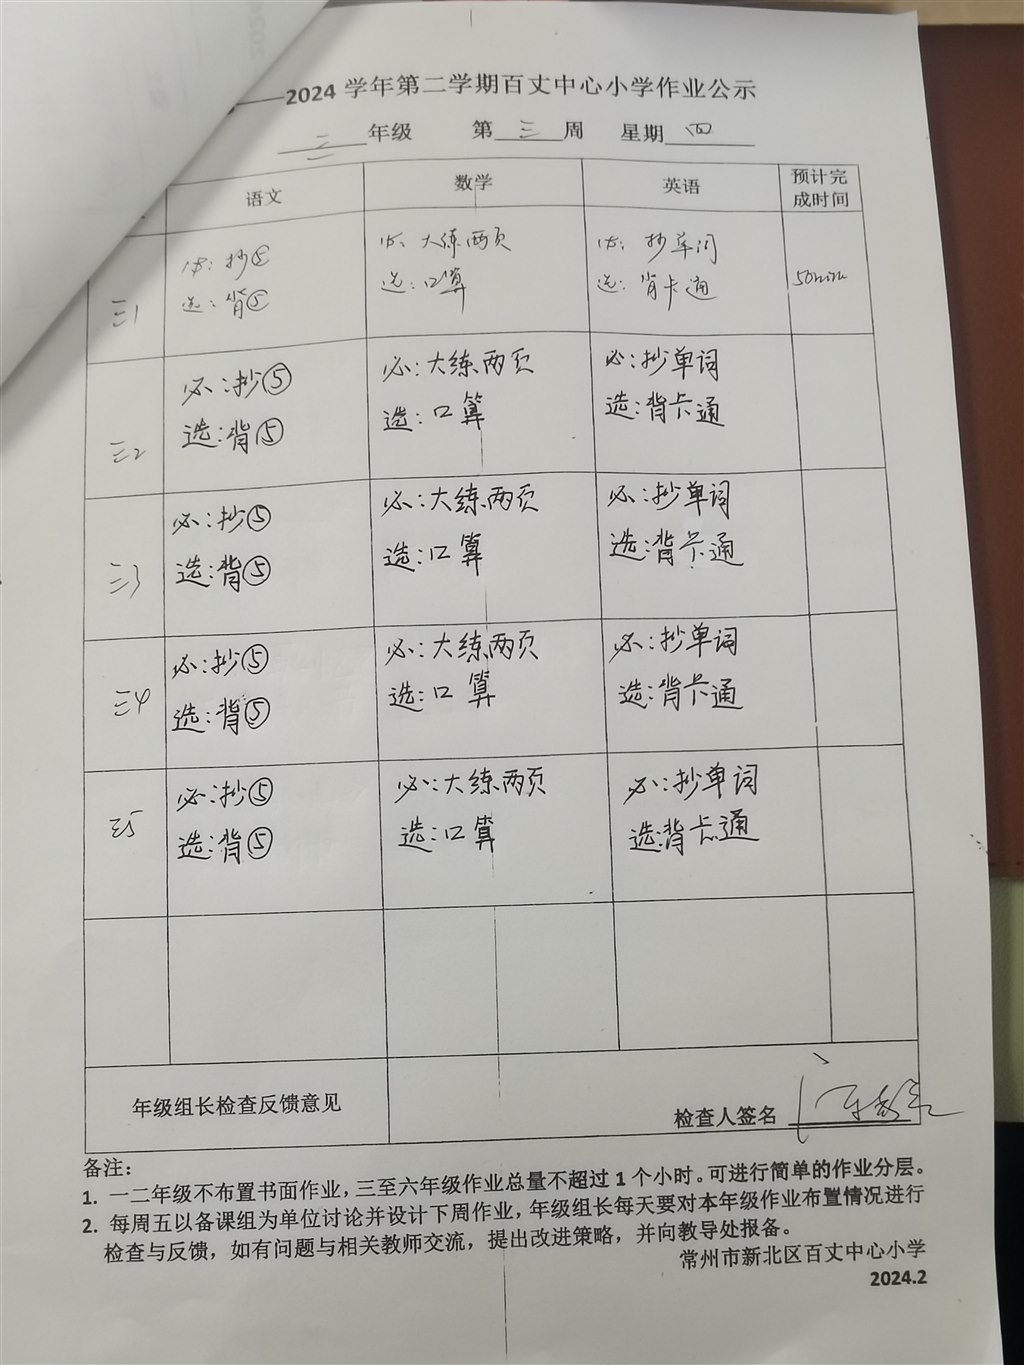 ——2024 学年第二学期百丈中心小学作业公示
三 年级 第 三 周 星期 四
语文 数学 英语 预计完成时间
三1
必：抄⑤
选：背⑤
必：大练两页
选：口算
必：抄单词
选：背卡通
50min
三2
必：抄⑤
选：背⑤
必：大练两页
选：口算
必：抄单词
选：背卡通
三3
必：抄⑤
选：背⑤
必：大练两页
选：口算
必：抄单词
选：背卡通
三4
必：抄⑤
选：背⑤
必：大练两页
选：口算
必：抄单词
选：背卡通
三5
必：抄⑤
选：背⑤
必：大练两页
选：口算
必：抄单词
选：背卡通
年级组长检查反馈意见
检查人签名
备注：
1. 一二年级不布置书面作业，三至六年级作业总量不超过 1 个小时。可进行简单的作业分层。
2. 每周五以备课组为单位讨论并设计下周作业，年级组长每天要对本年级作业布置情况进行
检查与反馈，如有问题与相关教师交流，提出改进策略，并向教导处报备。
常州市新北区百丈中心小学
2024.2